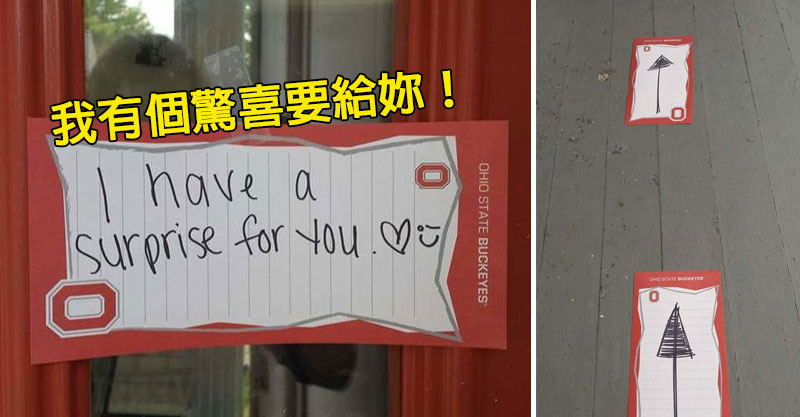 我有個驚喜要給妳！
I have a
surprise for you. ♡ :)
OHIO STATE BUCKEYES
OHIO STATE BUCKEYES
OHIO STATE BUCKEYES